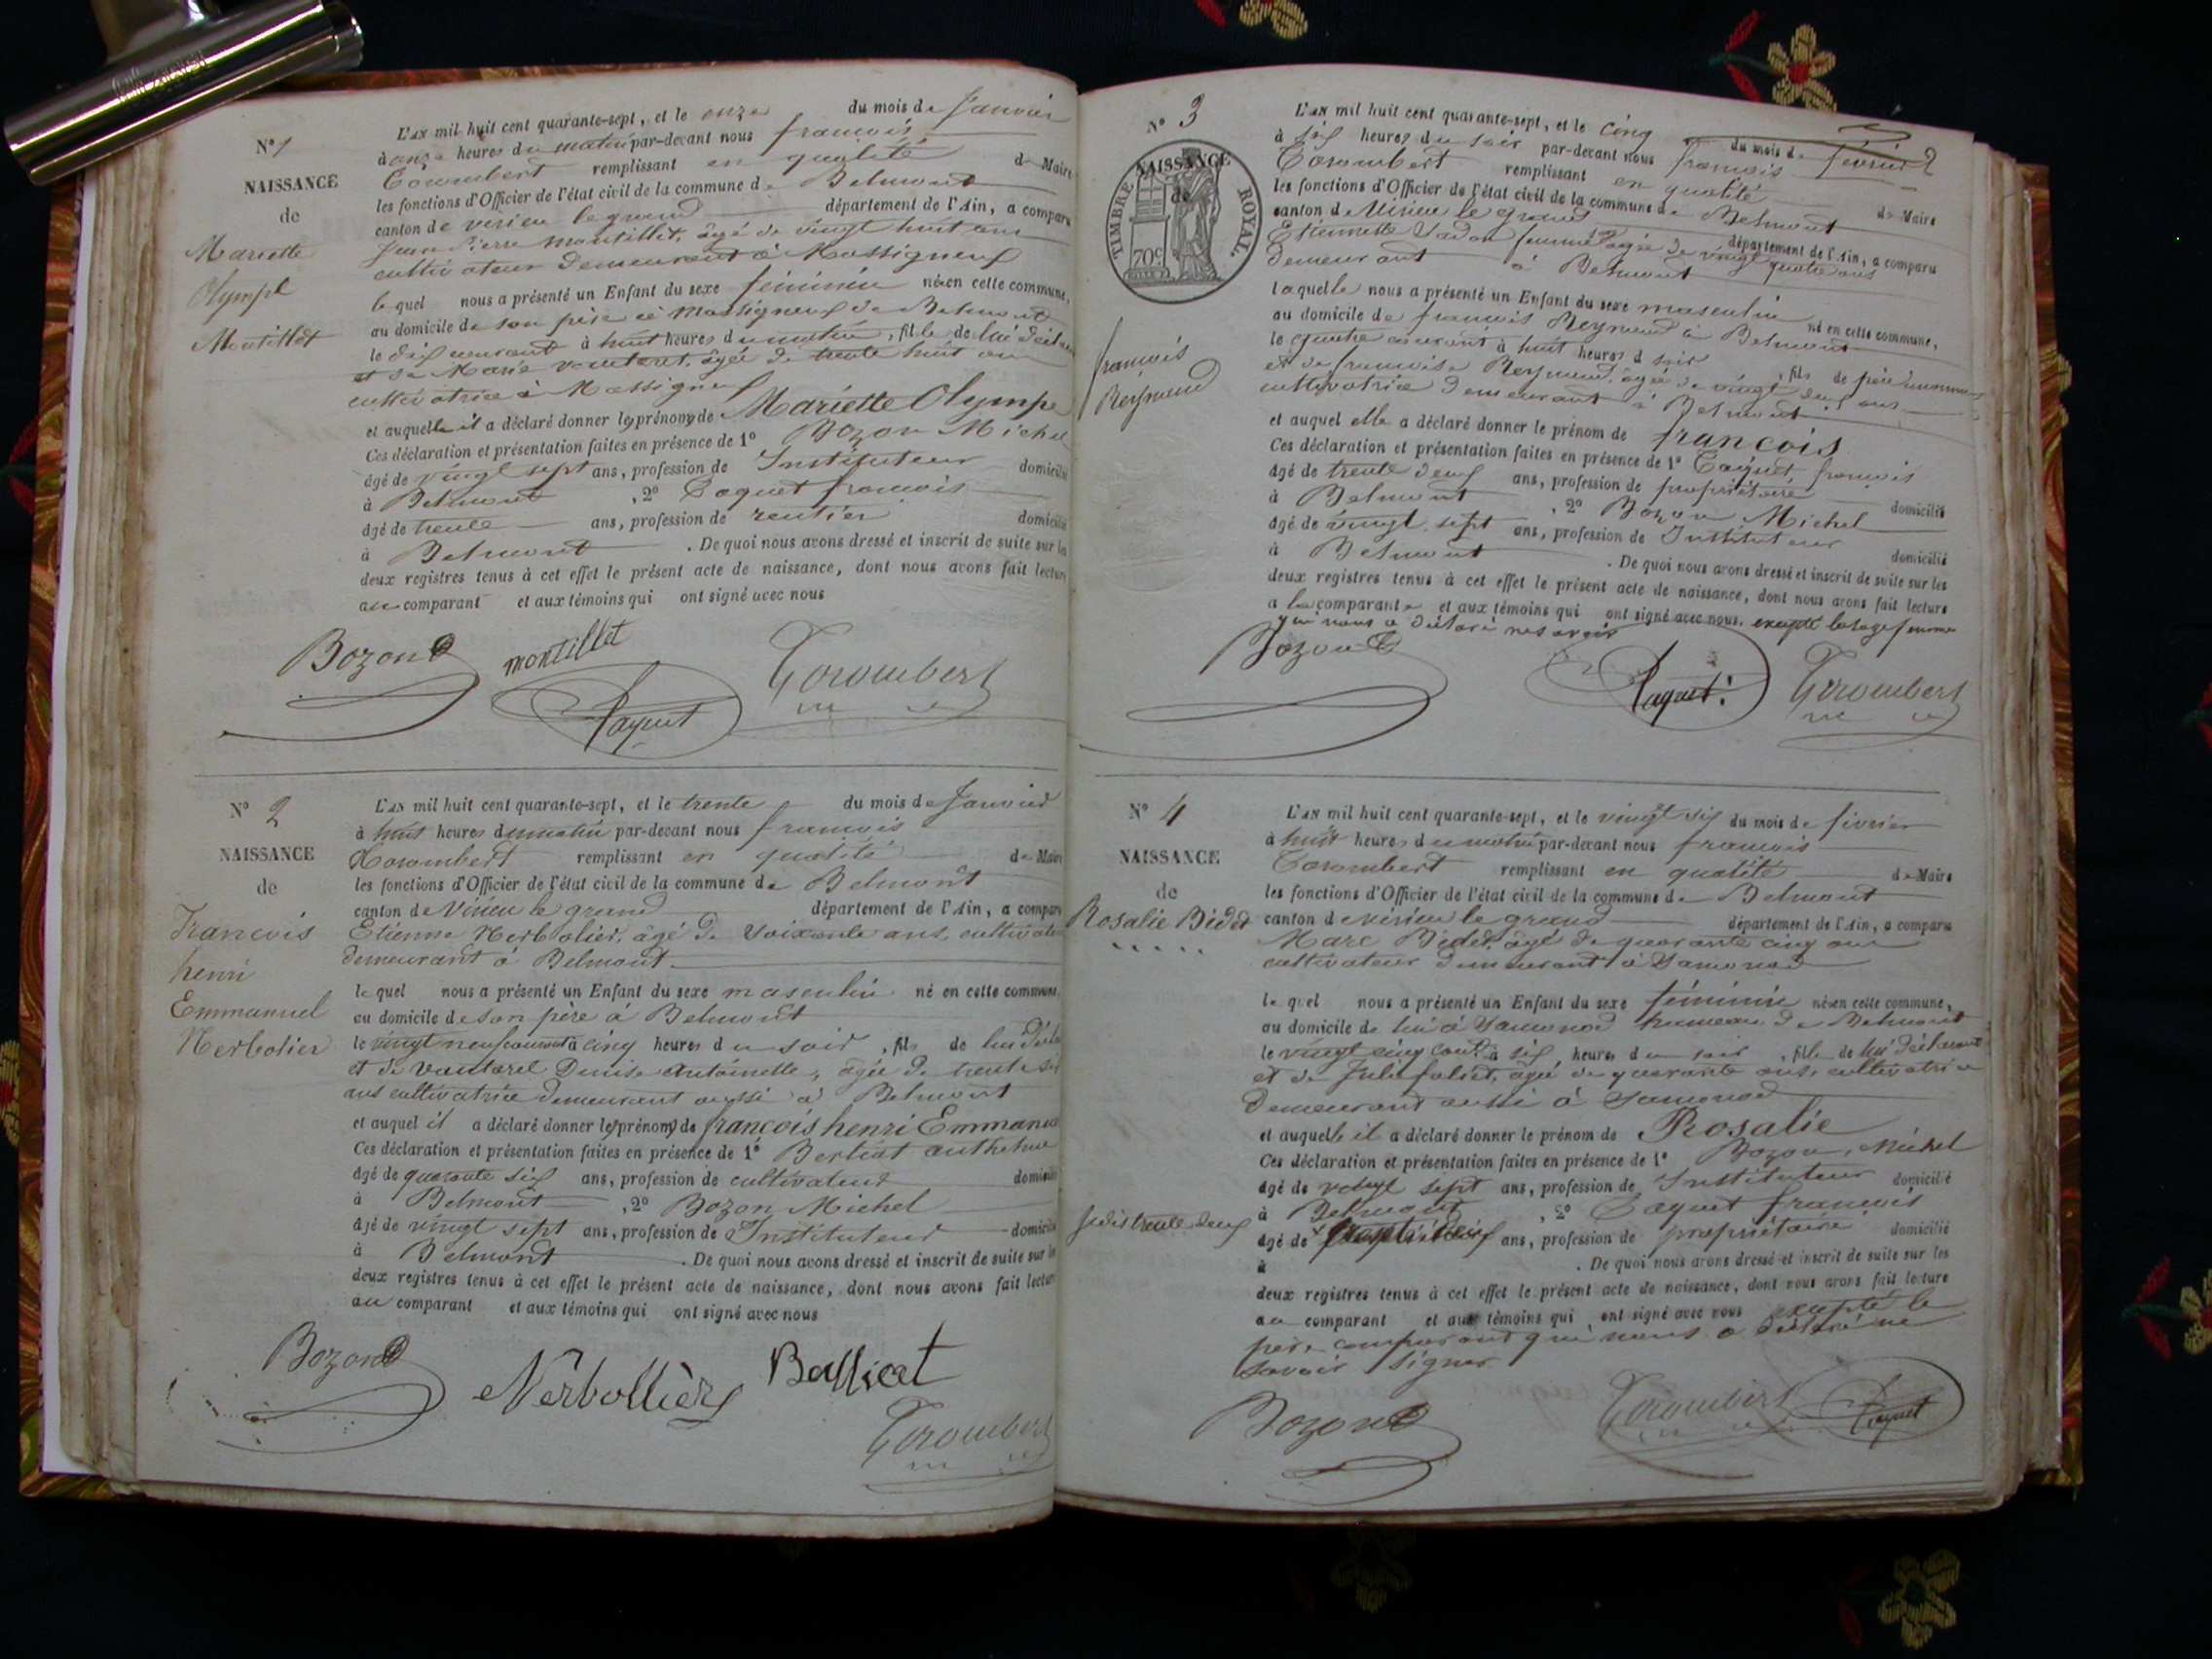 N° 1
NAISSANCE
de
Mariette
Olympe
Montillet
L'AN mil huit cent quarante-sept, et le onze du mois de Janvier
à onze heures du matin par-devant nous françois
Corombert remplissant en qualité de Maire
les fonctions d'Officier de l'état civil de la commune de Belmont
canton de virieu le grand département de l'Ain, a comparu
Jean Pierre Montillet, âgé de vingt huit ans
cultivateur demeurant à Massigneux
lequel nous a présenté un Enfant du sexe féminin née en cette commune,
au domicile de son père à Massigneux de Belmont
le dix courant à huit heures du matin, fille de lui
et de Marie vautaret, âgée de trente huit ans
cultivatrice à Massigneux
et auquelle il a déclaré donner les prénoms de Mariette Olympe
Ces déclaration et présentation faites en présence de 1° Bozon Michel
âgé de vingt sept ans, profession de Instituteur domicilié
à Belmont, 2° Paquet françois
âgé de trente ans, profession de rentier domicilié
à Belmont. De quoi nous avons dressé et inscrit de suite sur les
deux registres tenus à cet effet le présent acte de naissance, dont nous avons fait lecture
au comparant et aux témoins qui ont signé avec nous
Bozon montillet Corombert
Paquet
N° 2
NAISSANCE
de
François
henri
Emmanuel
Nerbolier
L'AN mil huit cent quarante-sept, et le trente du mois de Janvier
à huit heures du matin par-devant nous françois
Corombert remplissant en qualité de Maire
les fonctions d'Officier de l'état civil de la commune de Belmont
canton de Virieu le grand département de l'Ain, a comparu
Etienne Nerbolier, âgé de soixante ans, cultivate
demeurant à Belmont
lequel nous a présenté un Enfant du sexe masculin né en cette commune,
au domicile de son père à Belmont
le vingt neuf courant à cinq heures du soir, fils de lui
et de Vautarel Denise Antoinette, âgée de trente six
ans cultivatrice demeurant aussi à Belmont
et auquel il a déclaré donner les prénoms de françois henri Emmanuel
Ces déclaration et présentation faites en présence de 1° Berliat anthelme
âgé de quarante six ans, profession de cultivateur domicilié
à Belmont, 2° Bozon Michel
âgé de vingt sept ans, profession de Instituteur domicilié
à Belmont. De quoi nous avons dressé et inscrit de suite sur les
deux registres tenus à cet effet le présent acte de naissance, dont nous avons fait lecture
au comparant et aux témoins qui ont signé avec nous
Bozon Nerbollier Balliat
Corombert
N° 3
NAISSANCE
de
TIMBRE ROYAL.
70c
françois
Reynaud
2
L'AN mil huit cent quarante-sept, et le cinq du mois de février
à six heures du soir par-devant nous françois
Corombert remplissant en qualité de Maire
les fonctions d'Officier de l'état civil de la commune de Belmont
canton de Virieu le grand département de l'Ain, a comparu
Etiennette femme âgée de vingt quatre ans
demeurant à Belmont
laquelle nous a présenté un Enfant du sexe masculin né en cette commune,
au domicile de françois Reynaud à Belmont
le quatre courant à huit heures du soir, fils de père
et de françoise Reynaud, âgée de vingt deux ans
cultivatrice demeurant à Belmont
et auquel elle a déclaré donner le prénom de françois
Ces déclaration et présentation faites en présence de 1° Paquet françois
âgé de trente deux ans, profession de propriétaire domicilié
à Belmont, 2° Bozon Michel
âgé de vingt sept ans, profession de Instituteur domicilié
à Belmont. De quoi nous avons dressé et inscrit de suite sur les
deux registres tenus à cet effet le présent acte de naissance, dont nous avons fait lecture
a la comparante et aux témoins qui ont signé avec nous, excepté la sage femme
qui nous a déclaré ne savoir
Bozon Paquet Corombert
N° 4
NAISSANCE
de
Rosalie Bidet
L'AN mil huit cent quarante-sept, et le vingt six du mois de février
à huit heures du matin par-devant nous françois
Corombert remplissant en qualité de Maire
les fonctions d'Officier de l'état civil de la commune de Belmont
canton de virieu le grand département de l'Ain, a comparu
Marc Bidet, âgé de quarante cinq ans
cultivateur demeurant à Samonod
lequel nous a présenté un Enfant du sexe féminin née en cette commune,
au domicile de lui à Samonod hameau de Belmont
le vingt cinq cour.t à six heures du soir, fille de lui déclarant
et de Julie foliet, âgée de quarante ans, cultivatrice
demeurant aussi à Samonod
et auquelle il a déclaré donner le prénom de Rosalie
Ces déclaration et présentation faites en présence de 1° Bozon, Michel
âgé de vingt sept ans, profession de Instituteur domicilié
à Belmont, 2° Paquet françois
je dis trente deux
âgé de ans, profession de propriétaire domicilié
à . De quoi nous avons dressé et inscrit de suite sur les
deux registres tenus à cet effet le présent acte de naissance, dont nous avons fait lecture
au comparant et aux témoins qui ont signé avec nous excepté le
père comparant qui nous a déclaré ne
savoir signer
Bozon Corombert Paquet